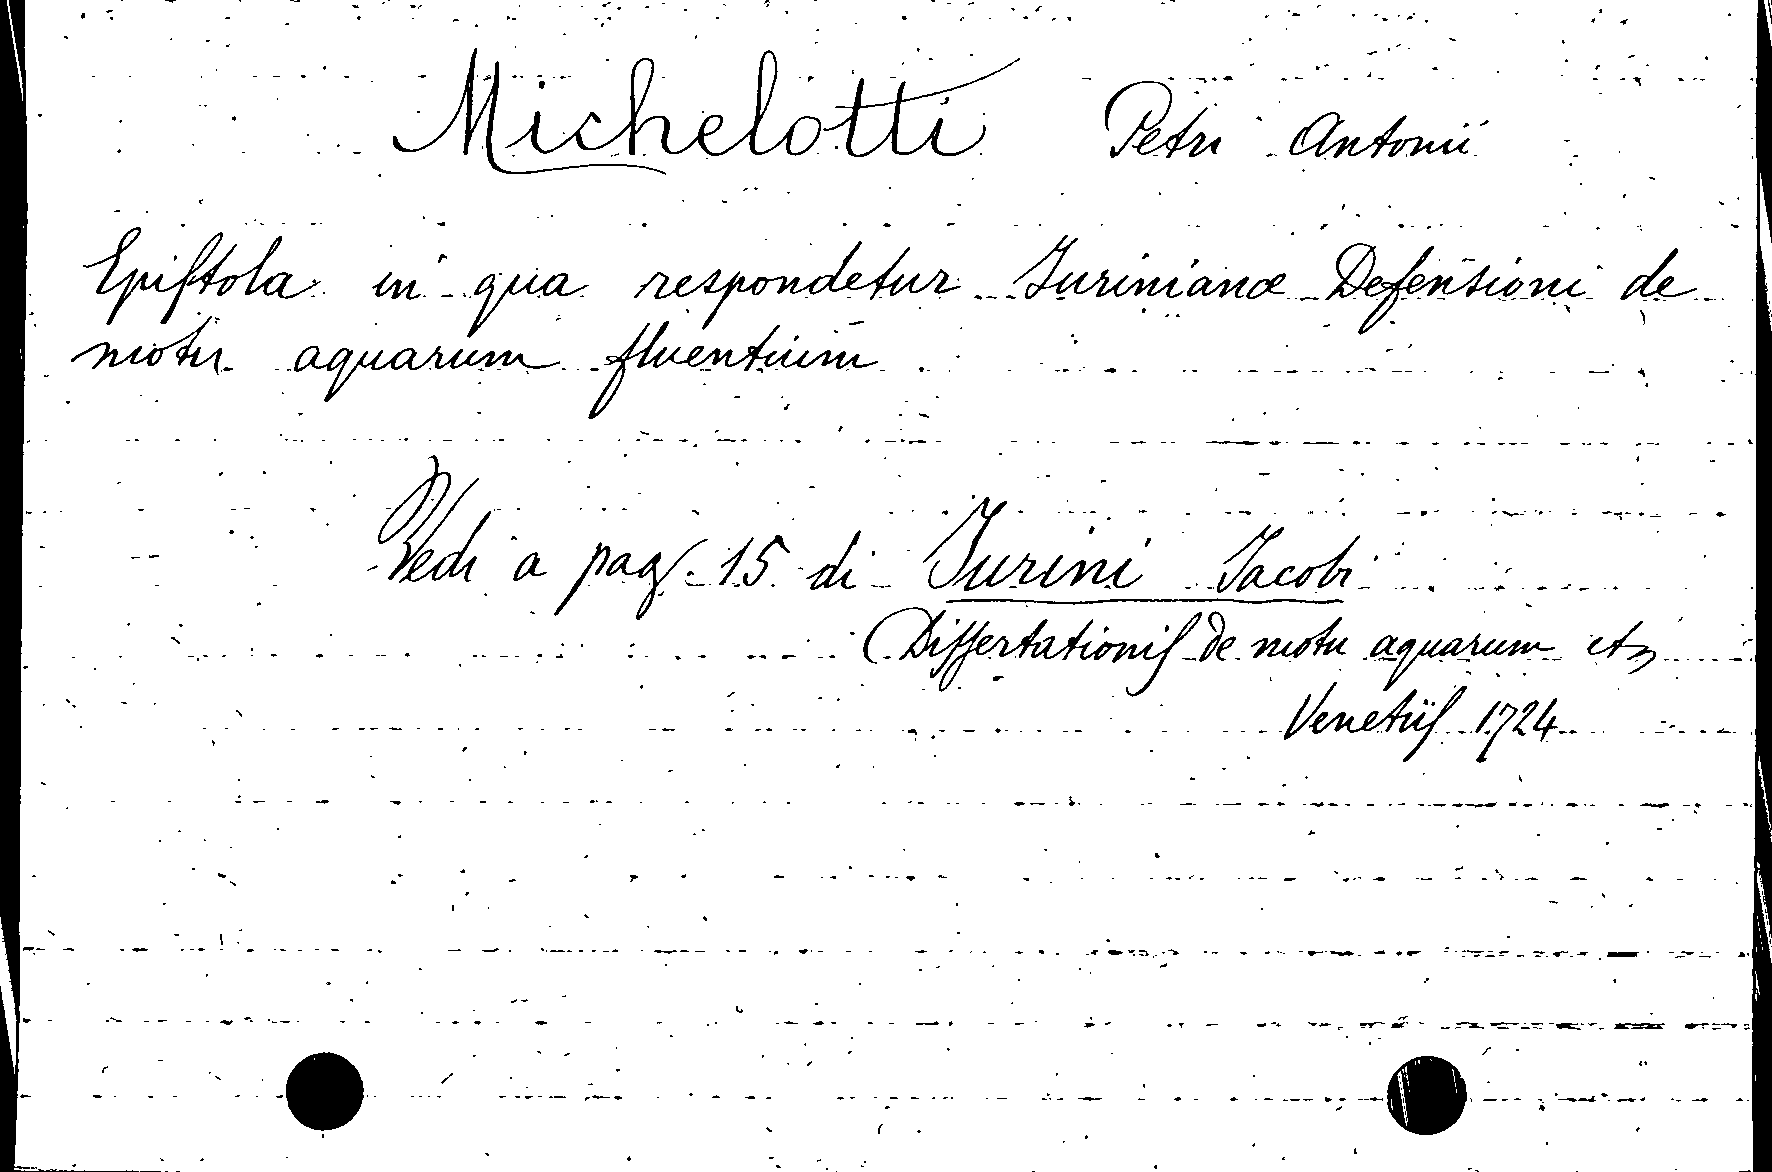 Michelotti Petri Antonii
Epiſtola in qua respondetur Jurinianæ Defensioni de
motu aquarum fluentium
Vedi a pag. 15 di Jurini Jacobi
(Diſſertationiſ de motu aquarum etc
Venetiiſ 1724